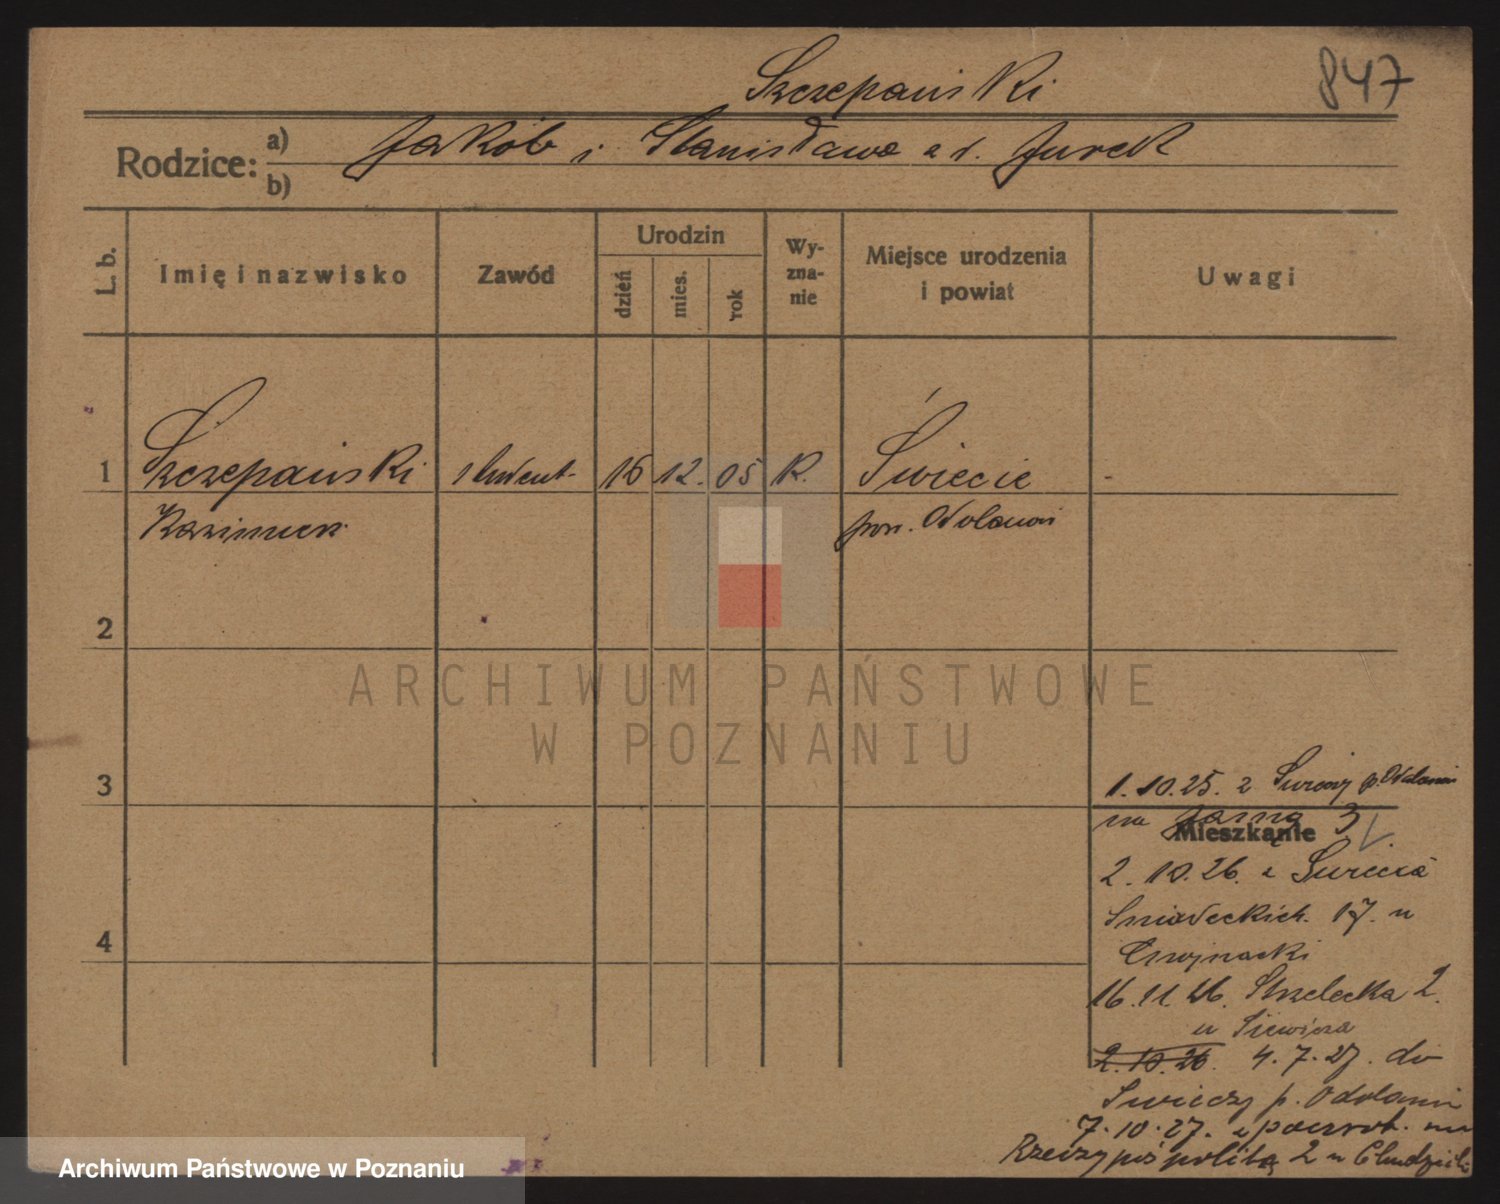 Szczepański
847
Rodzice:
a)
Jakób i Stanisława z d. Jurek
b)
L. b.
Imię i nazwisko
Zawód
Urodzin
dzień
mies.
rok
Wy-
zna-
nie
Miejsce urodzenia
i powiat
Uwagi
1
Szczepański
student
16
12.
05
R.
Świecie
-
Kazimierz
pow. Odolanów
2
ARCHIWUM PAŃSTWOWE
W POZNANIU
3
1.10.25. z p. Odolanów
na Jasną 3
Mieszkanie
2.10.26. z
Śniadeckich 17. u
4
16.11.26. Strzelecka 2.
u
2.10.26. 4.7.27. do
p. Odolanów
7.10.27. z powrot. na
Rzeczypospolitą 2 u
Archiwum Państwowe w Poznaniu